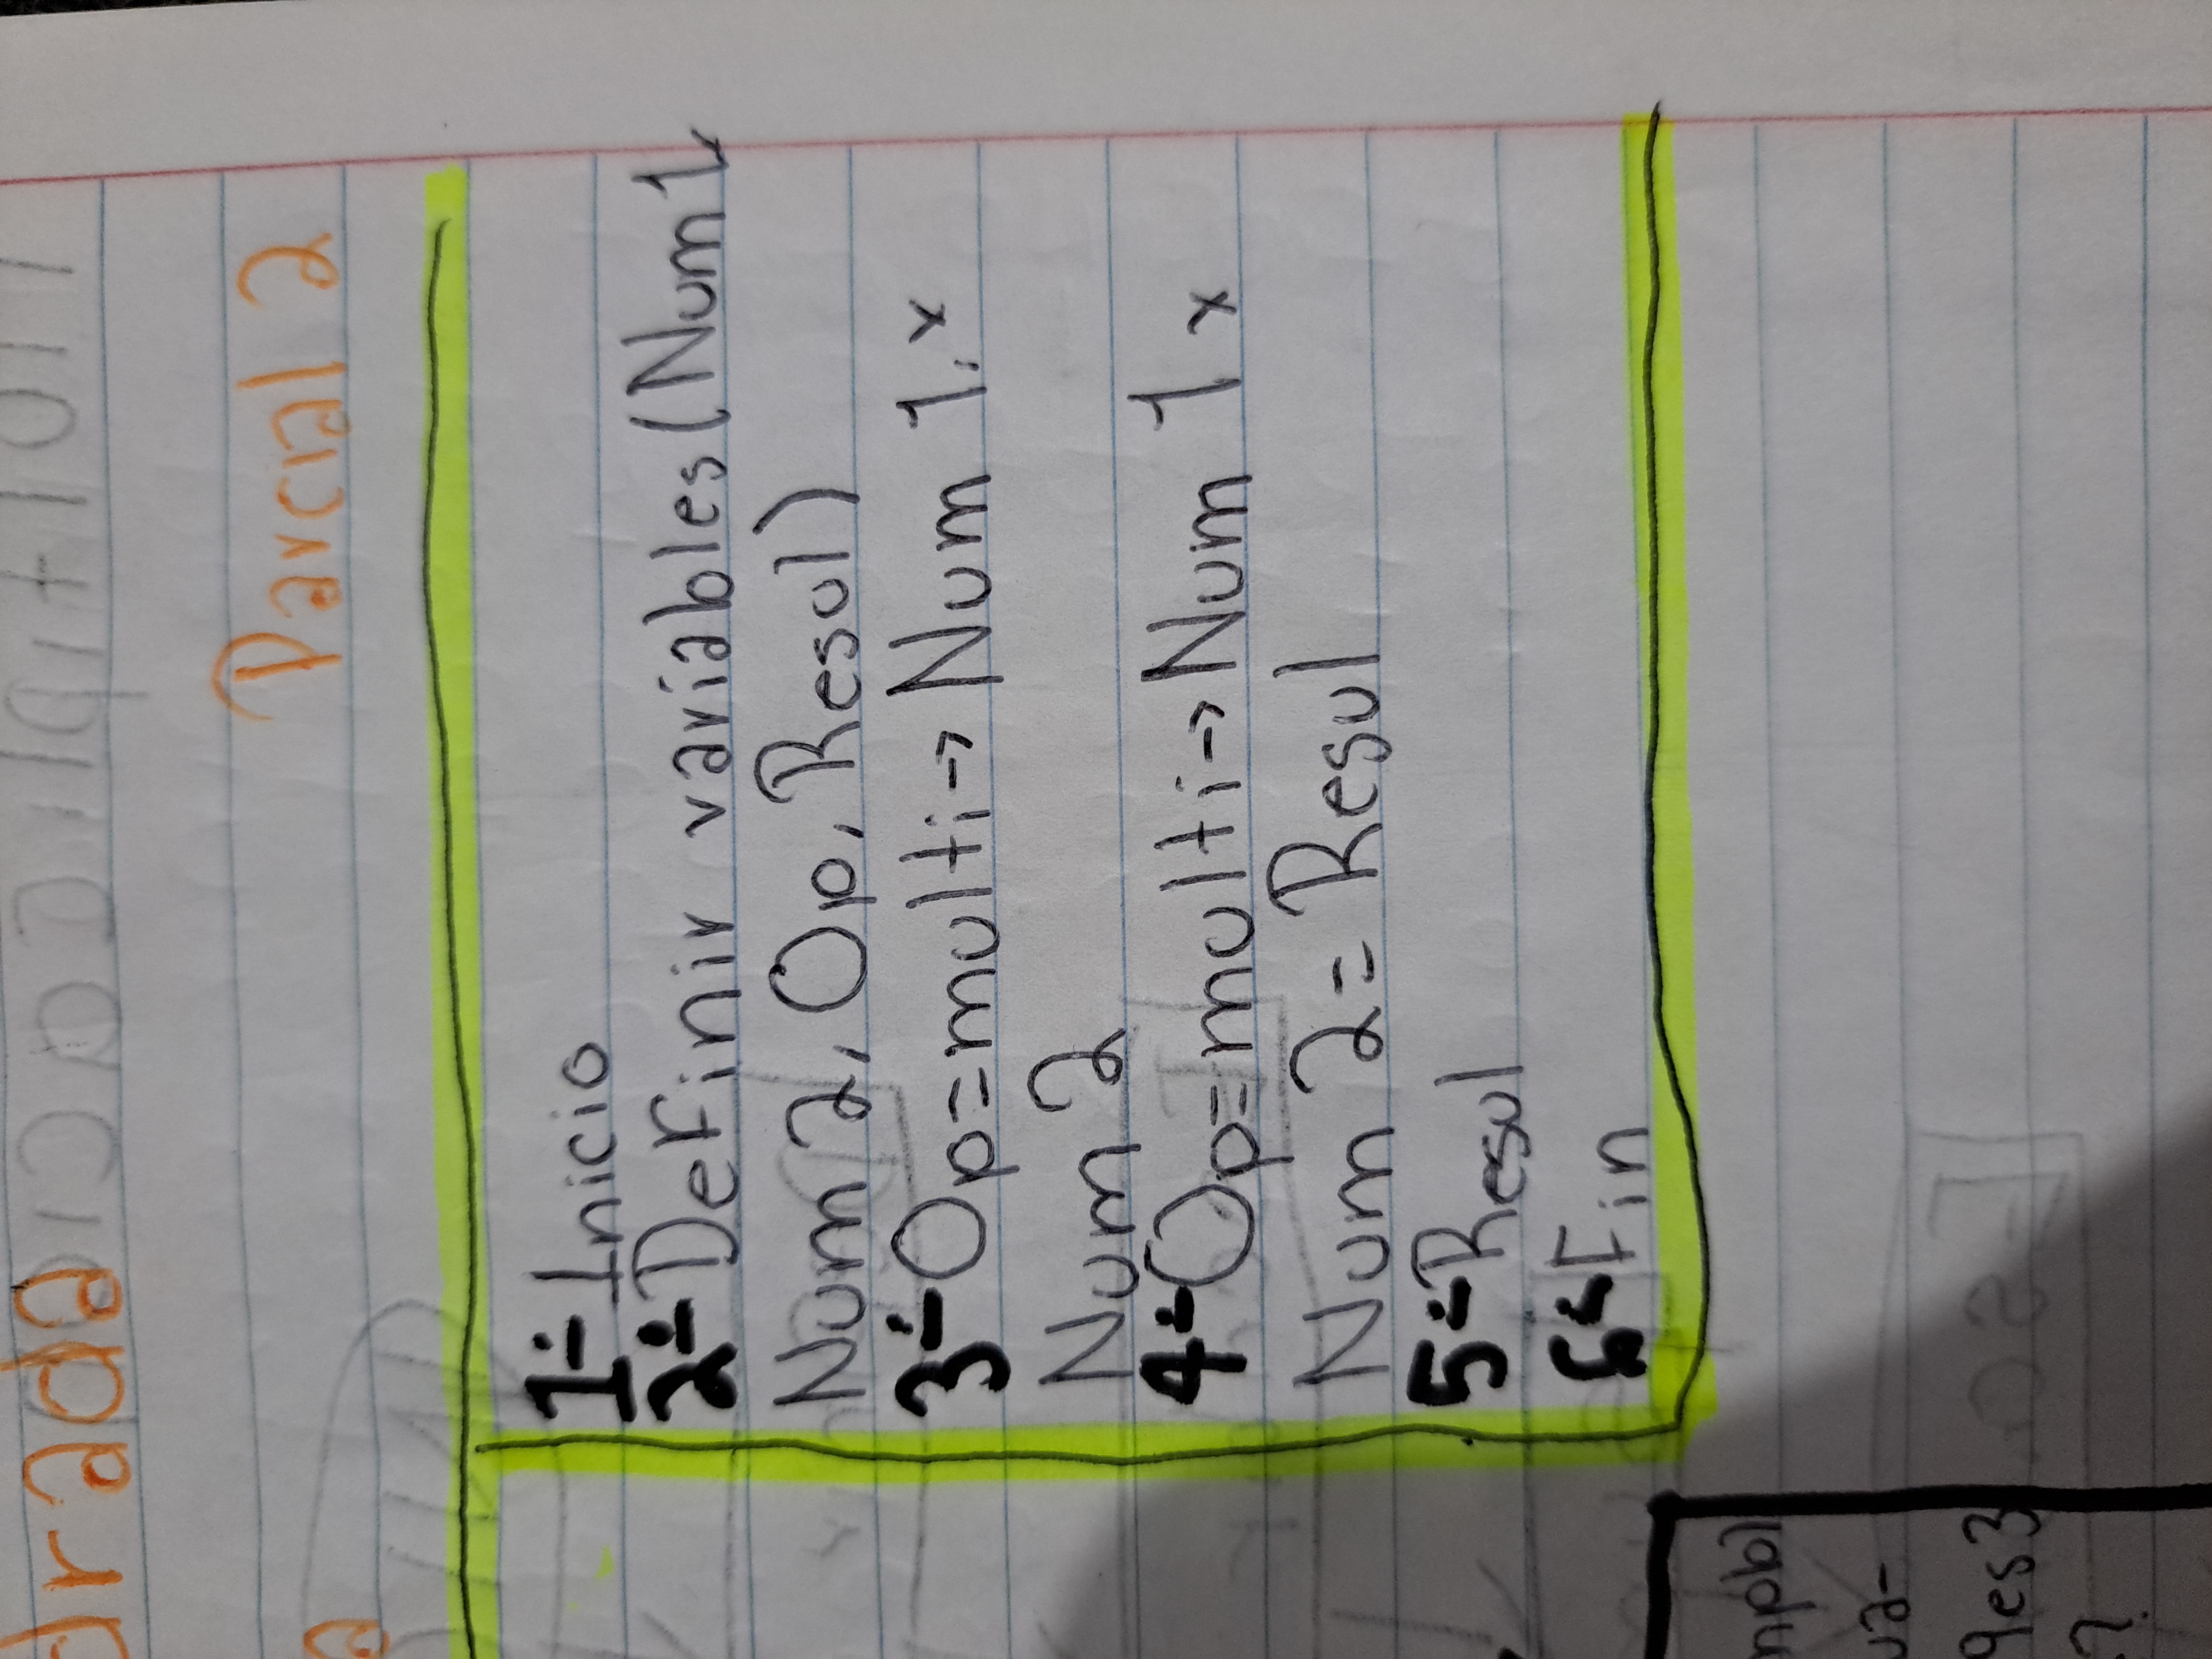 Parcial 2
1.- Inicio
2.- Definir variables (Num 1,
Num 2, Op, Resul)
3.- Op=multi→ Num 1. x
Num 2
4.- Op=multi→ Num 1 x
Num 2= Resul
5.- Resul
6.- Fin